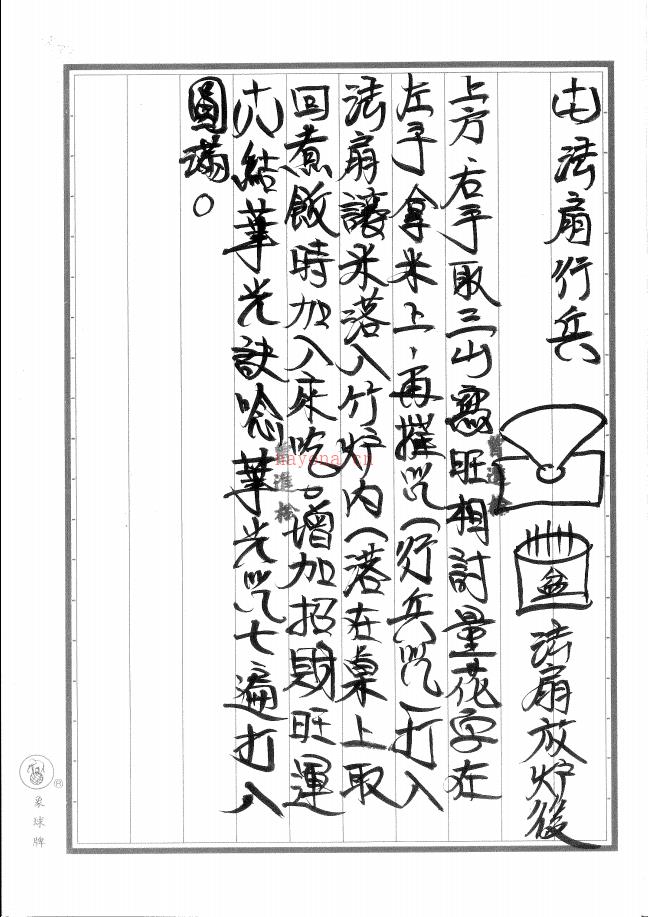 十七 法扇行兵
盆
法扇放炉後
上方、右手取三山寫旺相討量花字在
左手拿米上,再摧咒(行兵咒)打入
法扇讓米落入竹炉内(落在桌上取
回煮飯時加入來吃。增加招財旺運
十八 結華光訣唸華光咒七遍打入
圓滿。
曾進
曾進松
nayona.cn
象球牌